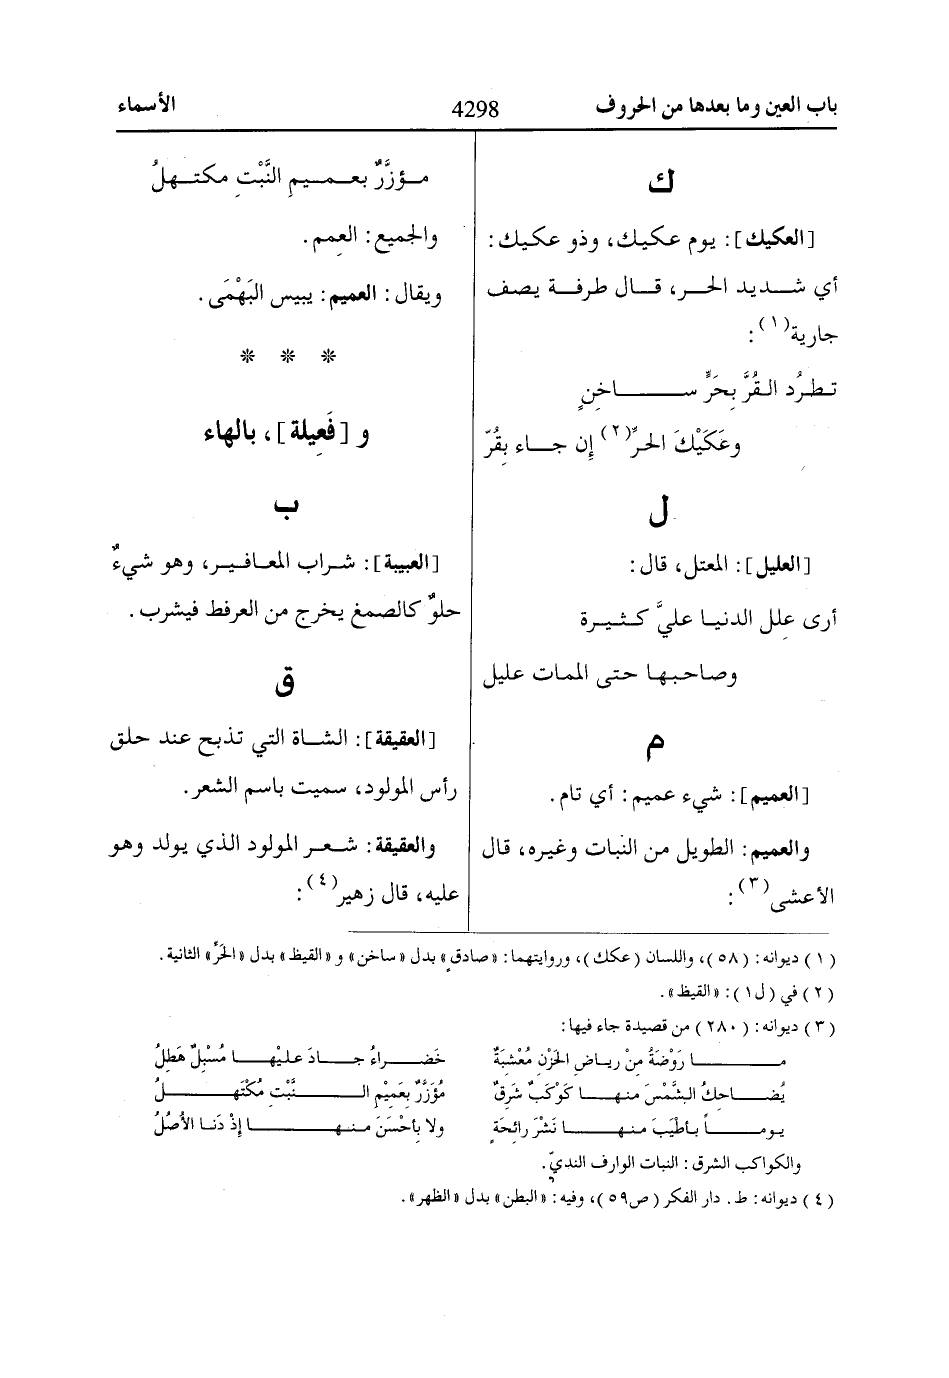 باب العين وما بعدها من الحروف 4298 الأسماء
ك
[العكيك]: يوم عكيك، وذو عكيك:
أي شديد الحر، قال طرفة يصف
جارية(١):
تطرُد القُرَّ بِحَرٍّ ساخنٍ
وعَكَيْكَ الحرِّ(٢) إن جاء بقُرّ
ل
[العليل]: المعتل، قال:
أرى علل الدنيا عليَّ كثيرة
وصاحبها حتى الممات عليل
م
[العميم]: شيء عميم: أي تام.
والعميم: الطويل من النبات وغيره، قال
الأعشى(٣):
مؤزَّرٌ بعميمِ النَّبْتِ مكتهلُ
والجميع: العمم.
ويقال: العميم: يبيس البَهْمَى.
* * *
و [فَعِيلة]، بالهاء
ب
[العبيبة]: شراب المعافير، وهو شيءٌ
حلوٌ كالصمغ يخرج من العرفط فيشرب.
ق
[العقيقة]: الشاة التي تذبح عند حلق
رأس المولود، سميت باسم الشعر.
والعقيقة: شعر المولود الذي يولد وهو
عليه، قال زهير(٤):
(١) ديوانه: (٥٨)، واللسان (عكك)، وروايتهما: «صادقٍ» بدل «ساخن» و«القيظ» بدل «الحَرِّ» الثانية.
(٢) في (ل١): «القيظ».
(٣) ديوانه: (٢٨٠) من قصيدة جاء فيها:
ما رَوْضَةُ مِنْ رياضِ الحَزْنِ مُعْشبَةٌ خَضراءُ جادَ عليْها مُسْبلٌ هَطِلُ
يُضاحكُ الشَّمْسَ منها كَوْكَبٌ شَرِقٌ مُؤَزَّرٌ بعَمِيْمِ النَّبْتِ مُكْتَهلُ
يوماً بأطْيَبَ منها نَشْرَ رائحَةٍ ولا بأحْسَنَ منها إذْ دَنا الأُصُلُ
والكواكب الشرق: النبات الوارف النديّ.
(٤) ديوانه: ط. دار الفكر (ص٥٩)، وفيه: «البطن» بدل «الظهر».